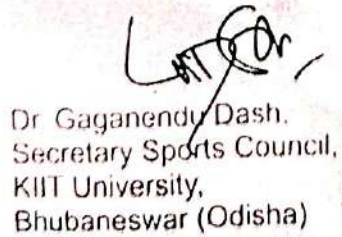 Dr Gaganendu Dash.
Secretary Sports Council,
KIIT University,
Bhubaneswar (Odisha)